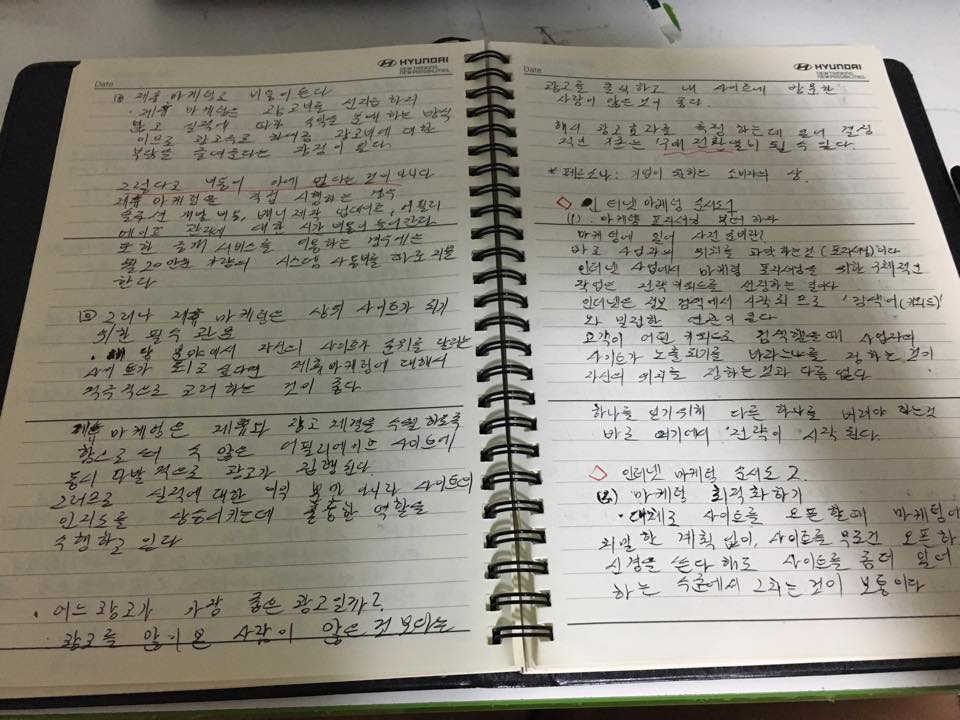 Date
HYUNDAI
NEW THINKING.
NEW POSSIBILITIES.
제휴 마케팅도 비용이 든다
· 제휴 마케팅은 광고비를 선지급 하지
않고 실적에 따라 수익을 분배 하는 방식
이므로 광고주로 하여금 광고비에 대한
부담을 줄여준다는 장점이 있다.
그렇다고 비용이 아예 없다는 것이 아니다
제휴 마케팅을 직접 시행하는 경우
솔루션 개발 비용, 배너제작 업데이트, 어필리
에이트 관리에 대한 시간 비용이 들어간다
또한 중개 서비스를 이용하는 경우에는
월 20만원 가량의 시스템 사용비를 따로 지불
한다
그러나 제휴 마케팅은 상위 사이트가 되기
위한 필수 관문
· 해당 분야에서 자신의 사이트가 순위를 달리는
사이트가 되고 싶다면 제휴마케팅에 대해서
적극적으로 고려 하는 것이 좋다
제휴 마케팅은 제휴와 광고 제결을 수행 하도록
함으로써 수 많은 어필리에이트 사이트에
동시 다발 적으로 광고가 집행 된다
그러므로 실적에 대한 이익 뿐만 아니라 사이트의
인지도를 상승시키는데 훌륭한 역할을
수행하고 있다
· 어느 광고가 가장 좋은 광고일까?
광고를 알기 온 사람이 많은 것 보다는
HYUNDAI
NEW THINKING.
NEW POSSIBILITIES.
Date
광고를 클릭하고 내 사이트에 방문한
사람이 많은 것이 좋다.
해서 광고효과를 측정 하는데 있어 결정
적인 기준은 '구매 전환율'이 될 수 있다.
* 페르소나: 기업이 원하는 소비자의 상.
◇ 인터넷 마케팅 순서도 1
(1). 마케팅 포지셔닝 부터 하라
마케팅에 있어 사전 준비란?
바로 사업과의 위치를 파악하는것 (포지셔닝)이다
인터넷 사업에서 마케팅 포지셔닝을 위한 구체적인
작업은 전략키워드를 선정하는 일이다
인터넷은 정보 검색에서 시작 되므로 '검색어(키워드)'
와 밀접한 연관이 있다
고객이 어떤 키워드로 검색했을때 사업자의
사이트가 노출 되기를 바라느냐를 정하는 것이
자신의 위치를 정하는것과 다름 없다
하나를 얻기위해 다른 하나를 버려야 하는것
바로 여기에서 전략이 시작 된다.
◇ 인터넷 마케팅 순서도 2.
(2) 마케팅 최적화하기
· 대체로 사이트를 오픈 할때 마케팅에
치밀한 계획 없이, 사이트를 무조건 오픈 하
신경을 쓴다 해도 사이트를 좀더 있어
하는 수준에서 그치는 것이 보통이다